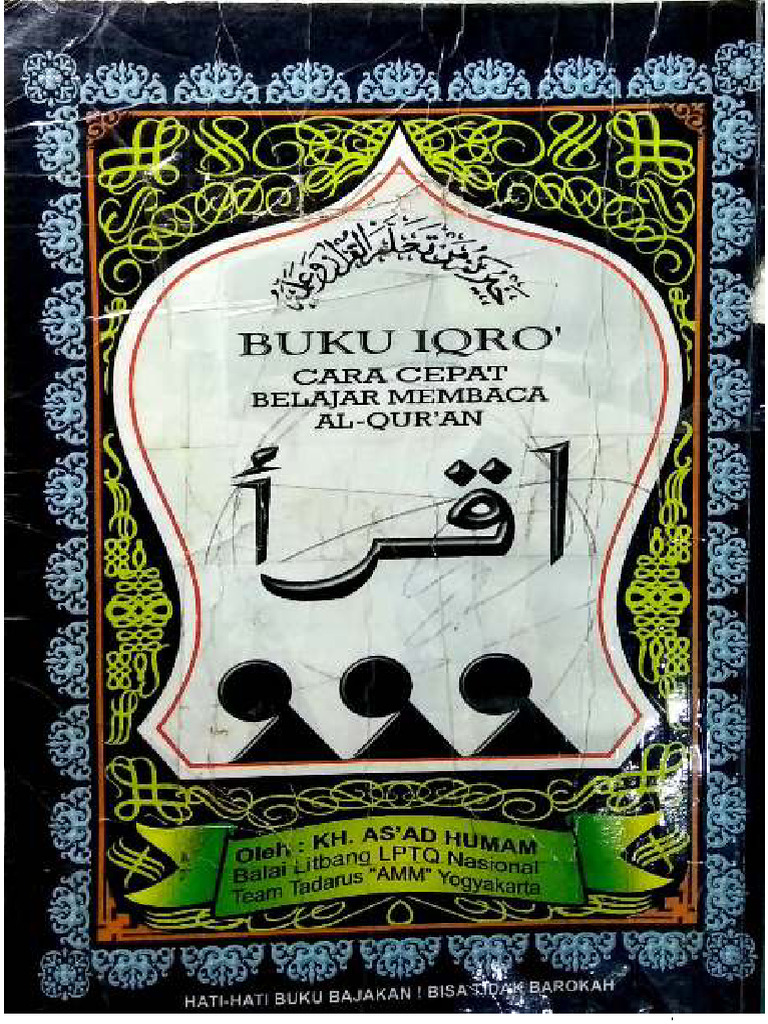 خيركم من تعلم القرآن وعلمه
BUKU IQRO'
CARA CEPAT
BELAJAR MEMBACA
AL-QUR'AN
اقرأ
Oleh : KH. AS'AD HUMAM
Balai Litbang LPTQ Nasional
Team Tadarus "AMM" Yogyakarta
HATI-HATI BUKU BAJAKAN ! BISA TIDAK BAROKAH